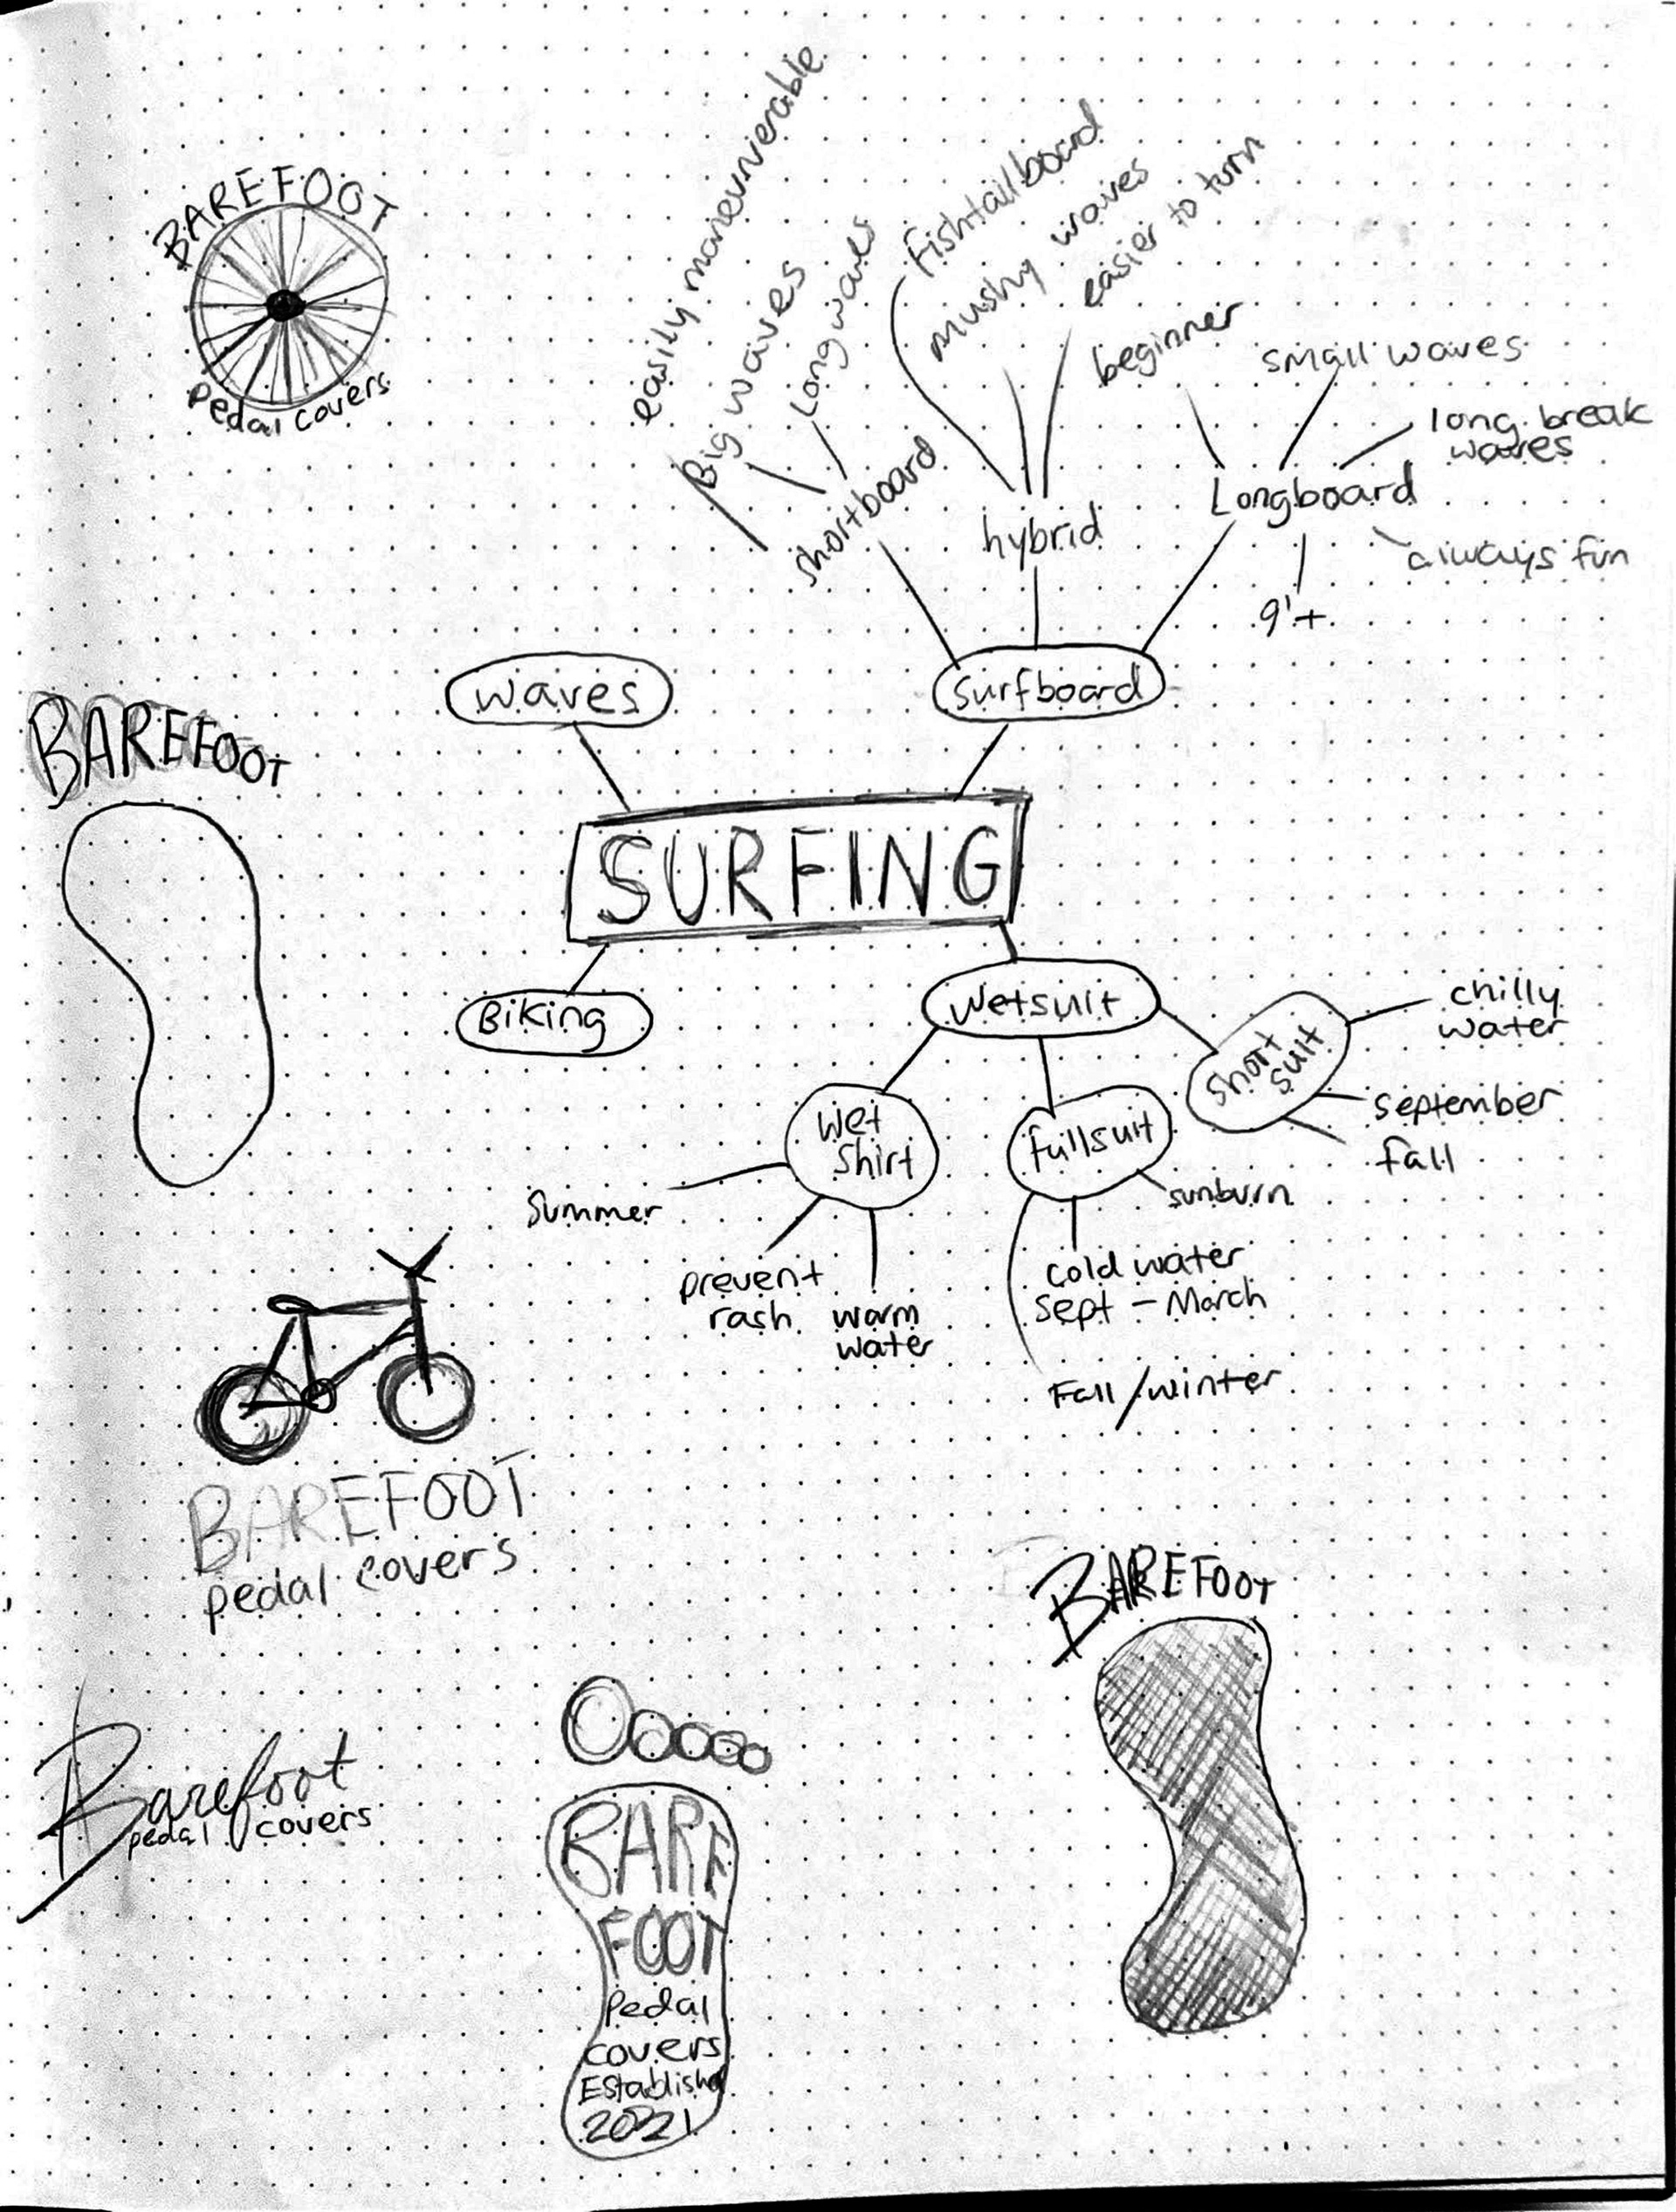 BAREFOOT
pedal covers
easily manuevnierable
Big waves
Long waves
shortboard
Fishtail board
mushy waves
easier to turn
hybrid
beginner
small waves
long break
waves
Longboard
always fun
9'+
waves
surfboard
BAREFOOT
SURFING
Biking
Wetsuit
short
suit
chilly
water
september
fall
Wet
Shirt
fullsuit
Summer
prevent
rash
warm
water
sunburn
cold water
Sept - March
Fall/winter
BAREFOOT
pedal covers
BAREFOOT
Barefoot
pedal covers
BARE
FOOT
Pedal
covers
Established
2021